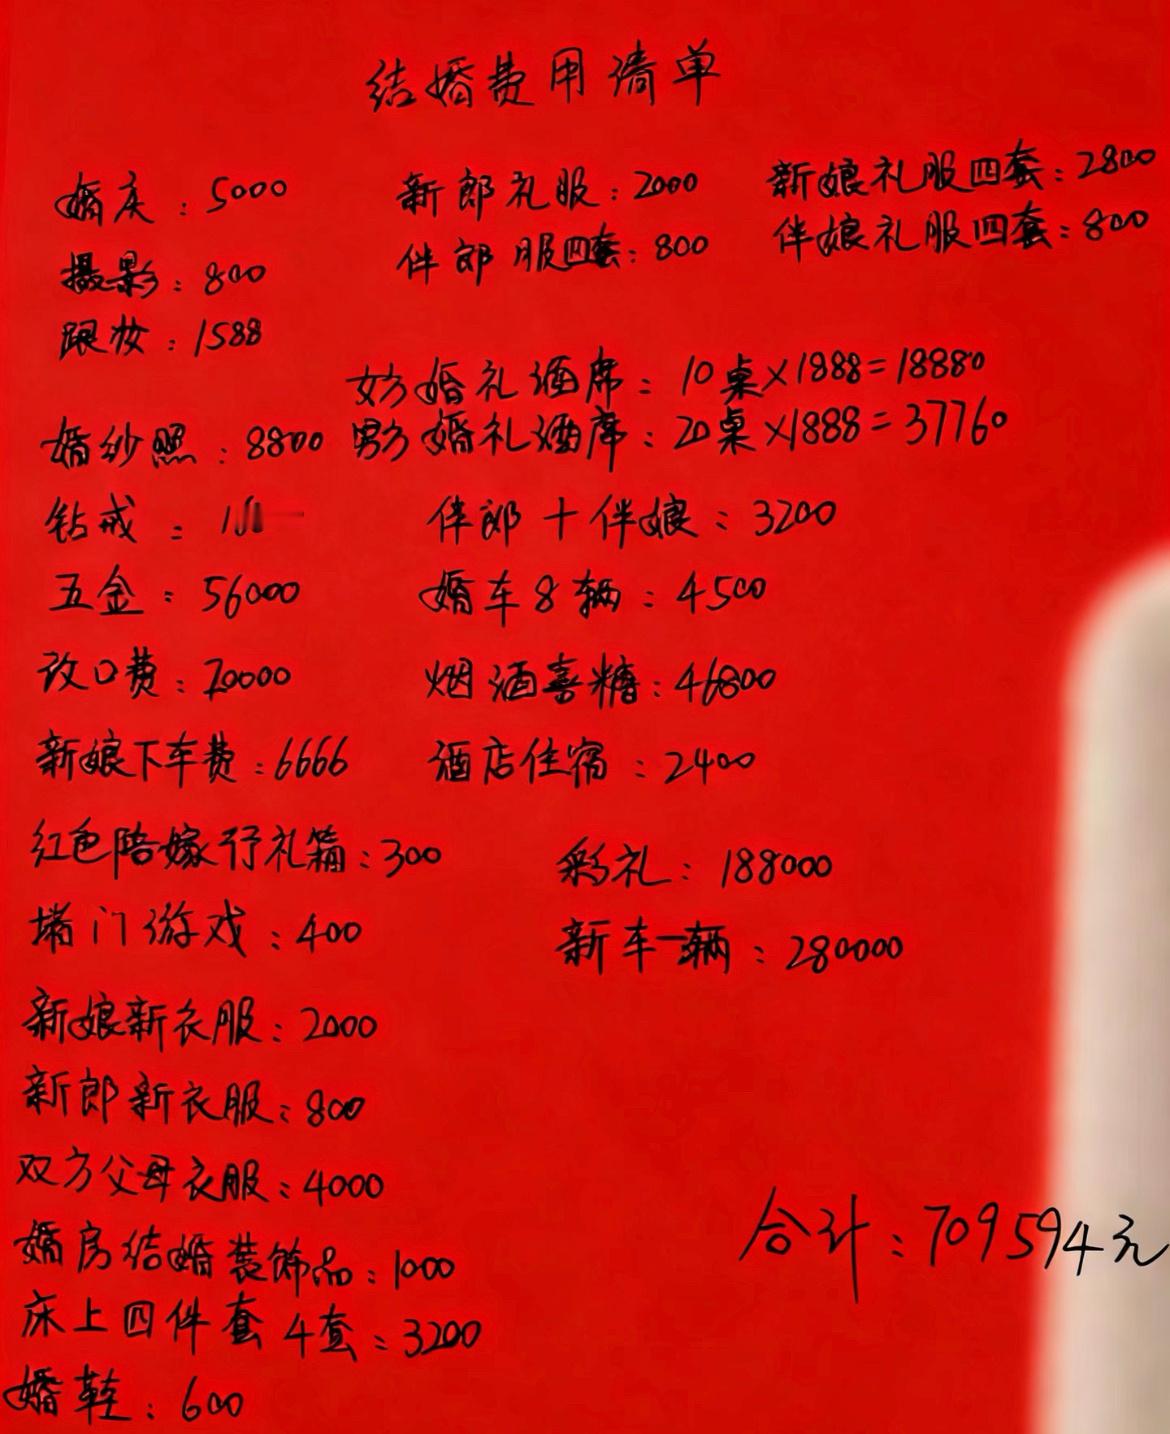 结婚费用清单
婚庆：5000 新郎礼服：2000 新娘礼服四套：2800
摄影：800 伴郎服四套：800 伴娘礼服四套：800
跟妆：1588
女方婚礼酒席：10桌×1888=18880
婚纱照：8800 男方婚礼酒席：20桌×1888=37760
钻戒： 伴郎+伴娘：3200
五金：56000 婚车8辆：4500
改口费：20000 烟酒喜糖：46800
新娘下车费：6666 酒店住宿：2400
红色陪嫁行礼箱：300 彩礼：188000
堵门游戏：400 新车一辆：280000
新娘新衣服：2000
新郎新衣服：800
双方父母衣服：4000
合计：709594元
婚房结婚装饰品：1000
床上四件套4套：3200
婚鞋：600